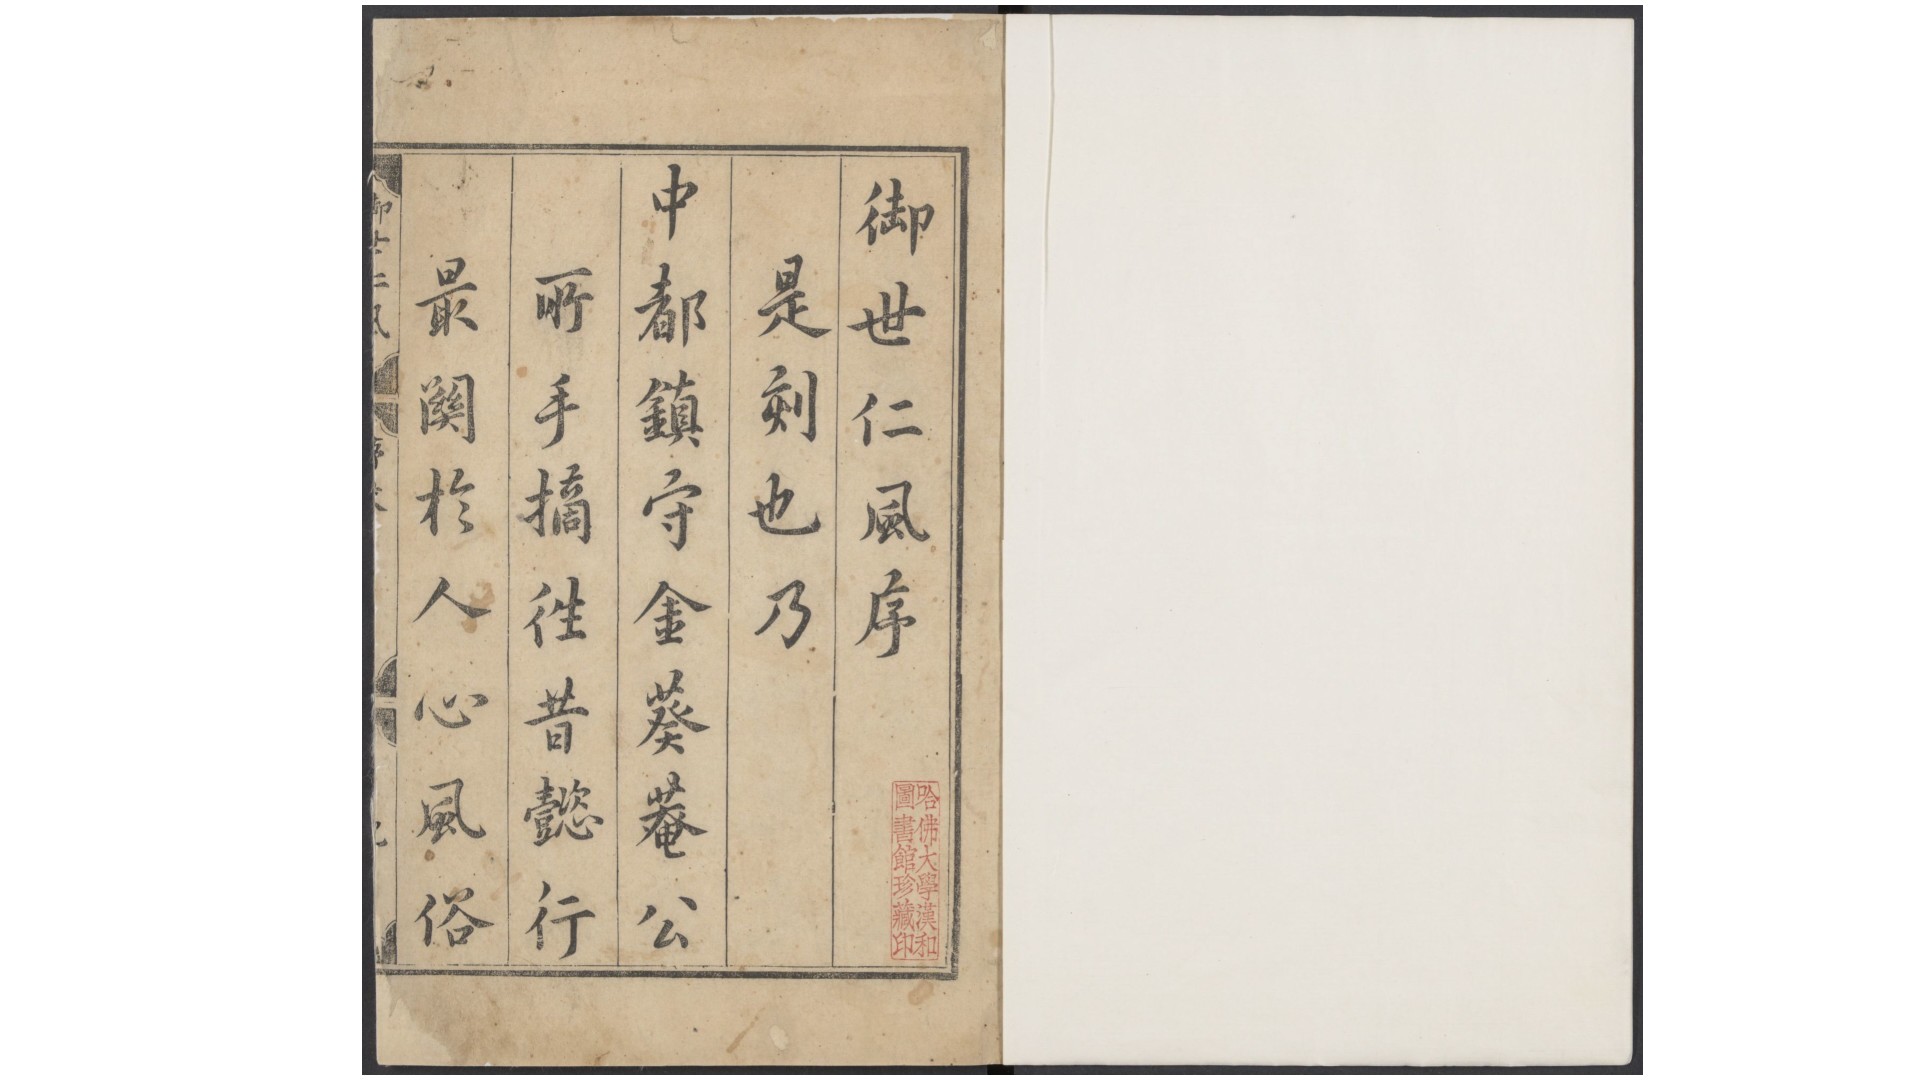 御世仁風序
是刻也乃
中都鎮守金葵菴公
所手摘徃昔懿行
最関於人心風俗
哈佛大學漢和
圖書館珍藏印
御世仁風
序